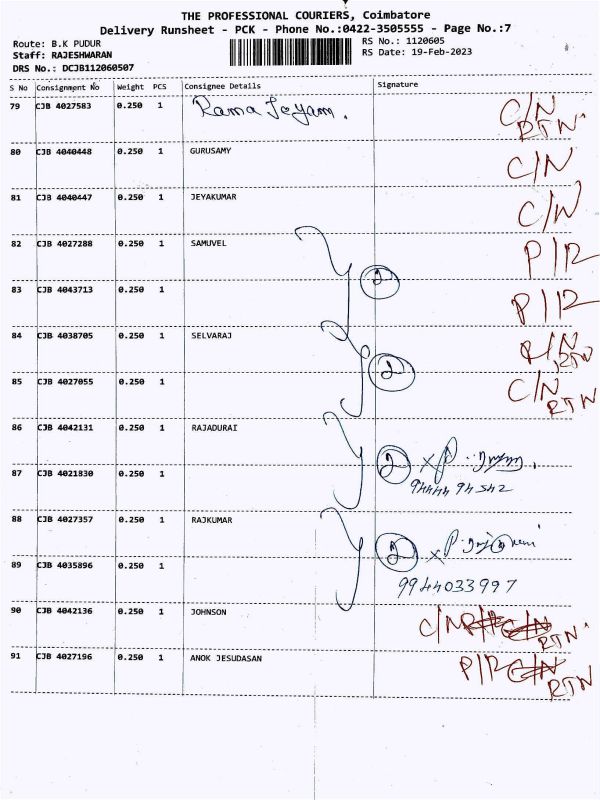 THE PROFESSIONAL COURIERS, Coimbatore
Delivery Runsheet - PCK - Phone No.:0422-3505555 - Page No.:7
Route: B.K PUDUR RS No.: 1120605
Staff: RAJESHWARAN RS Date: 19-Feb-2023
DRS No.: DCJB112060507
S No Consignment No Weight PCS Consignee Details Signature
79 CJB 4027583 0.250 1 Rama Jeyam. C/N
RTN
80 CJB 4040448 0.250 1 GURUSAMY C/N
81 CJB 4040447 0.250 1 JEYAKUMAR C/N
82 CJB 4027288 0.250 1 SAMUVEL P/R
2
83 CJB 4043713 0.250 1 P/R
84 CJB 4038705 0.250 1 SELVARAJ RTN
2
85 CJB 4027055 0.250 1 C/N
RTN
86 CJB 4042131 0.250 1 RAJADURAI
2
87 CJB 4021830 0.250 1 94444 94542
88 CJB 4027357 0.250 1 RAJKUMAR
2
89 CJB 4035896 0.250 1
9944033997
90 CJB 4042136 0.250 1 JOHNSON C/N
RTN
91 CJB 4027196 0.250 1 ANOK JESUDASAN P/R C/N
RTN